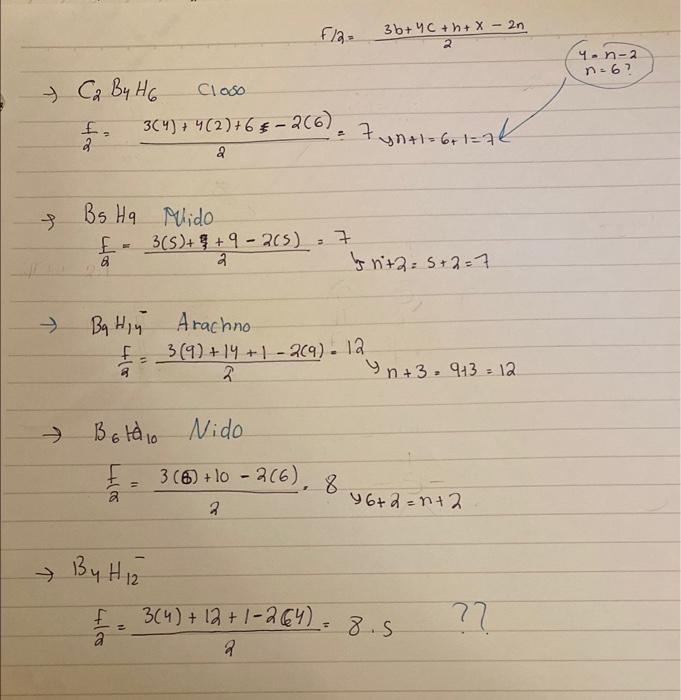 F/2 = 3b+4c+h+x-2n
2
4 = n-2
n=6?
→ C2 B4 H6 Closo
f/2 = 3(4)+4(2)+6-2(6) = 7 ↳n+1=6+1=7
2
→ B5 H9 Nido
f/2 = 3(5)+9-2(5) = 7
2
↳ n+2 = 5+2=7
→ B9 H14⁻ Arachno
f/2 = 3(9)+14+1-2(9) = 12
2
↳ n+3 = 9+3 = 12
→ B6 H10 Nido
f/2 = 3(6)+10-2(6) = 8
2
↳6+2=n+2
→ B4 H12⁻
f/2 = 3(4)+12+1-2(4) = 8.5 ??
2